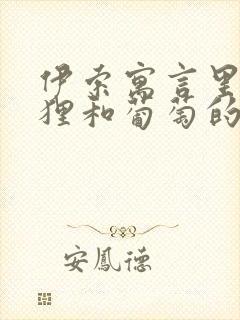 伊索寓言里
狸和葡萄的
安鳳德